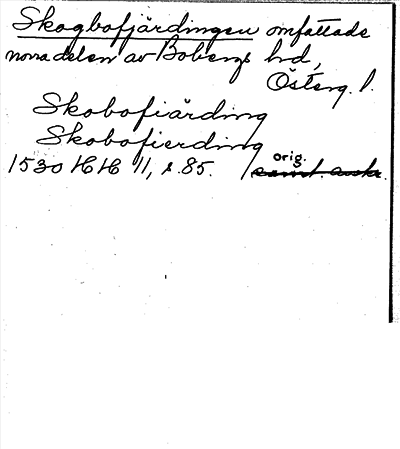 Skogbofjärdingen omfattade
norra delen av Bobergs hd,
Österg. l.
Skobofiärding
Skobofierding
1530 HH 11, s. 85. / orig.
samt. avskr.